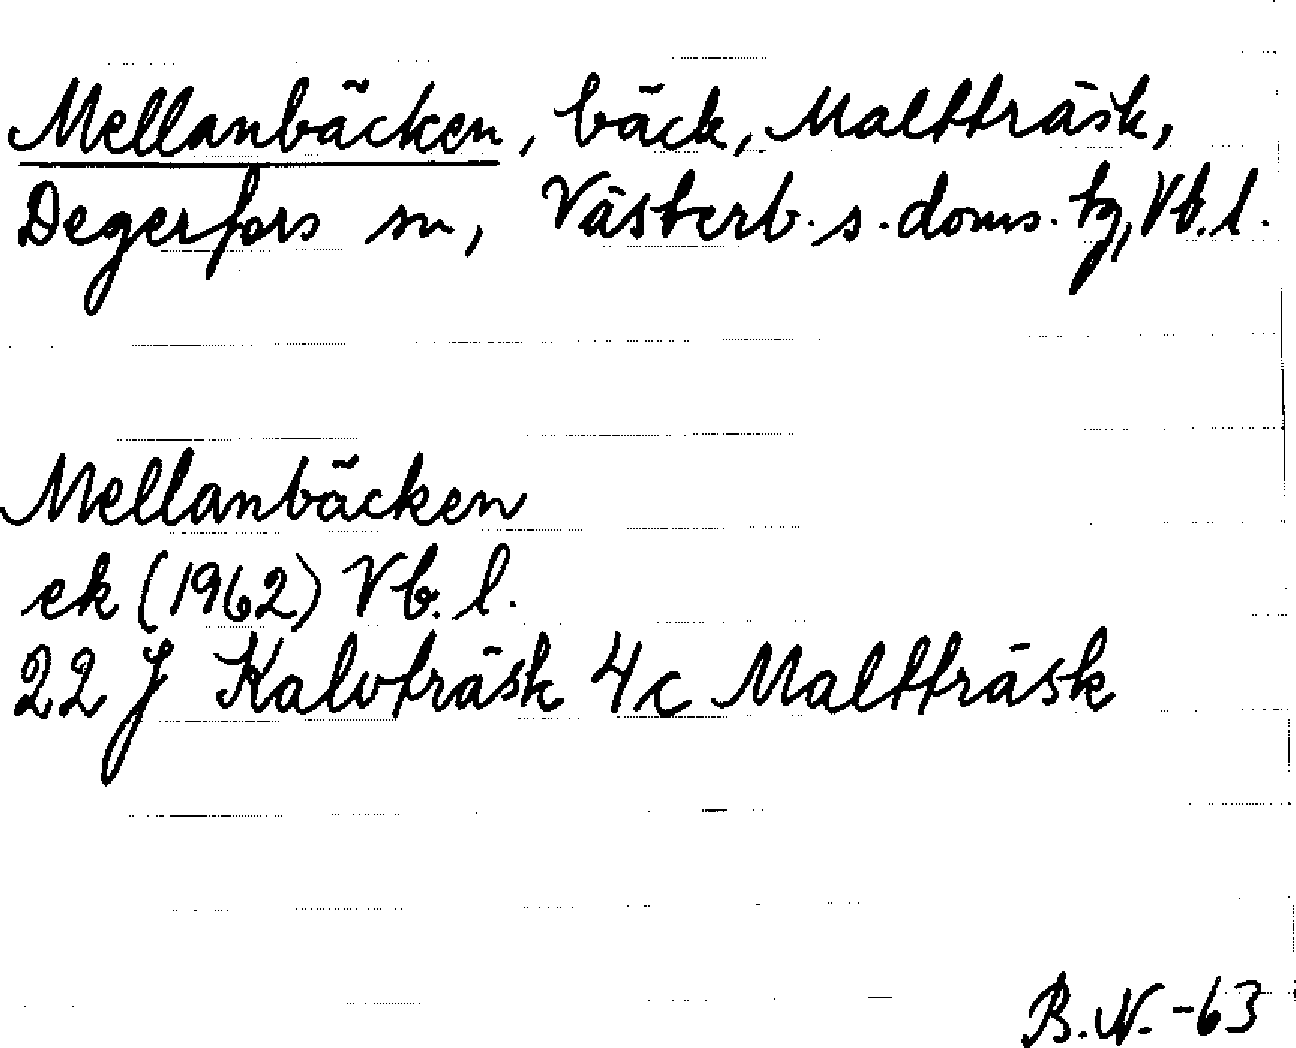 Mellanbäcken, bäck, Maltträsk,
Degerfors sn, Västerb. s. doms. tg, Vb. l.
Mellanbäcken
ek (1962) Vb. l.
22 J Kalvträsk 4c Maltträsk
B.N. -63